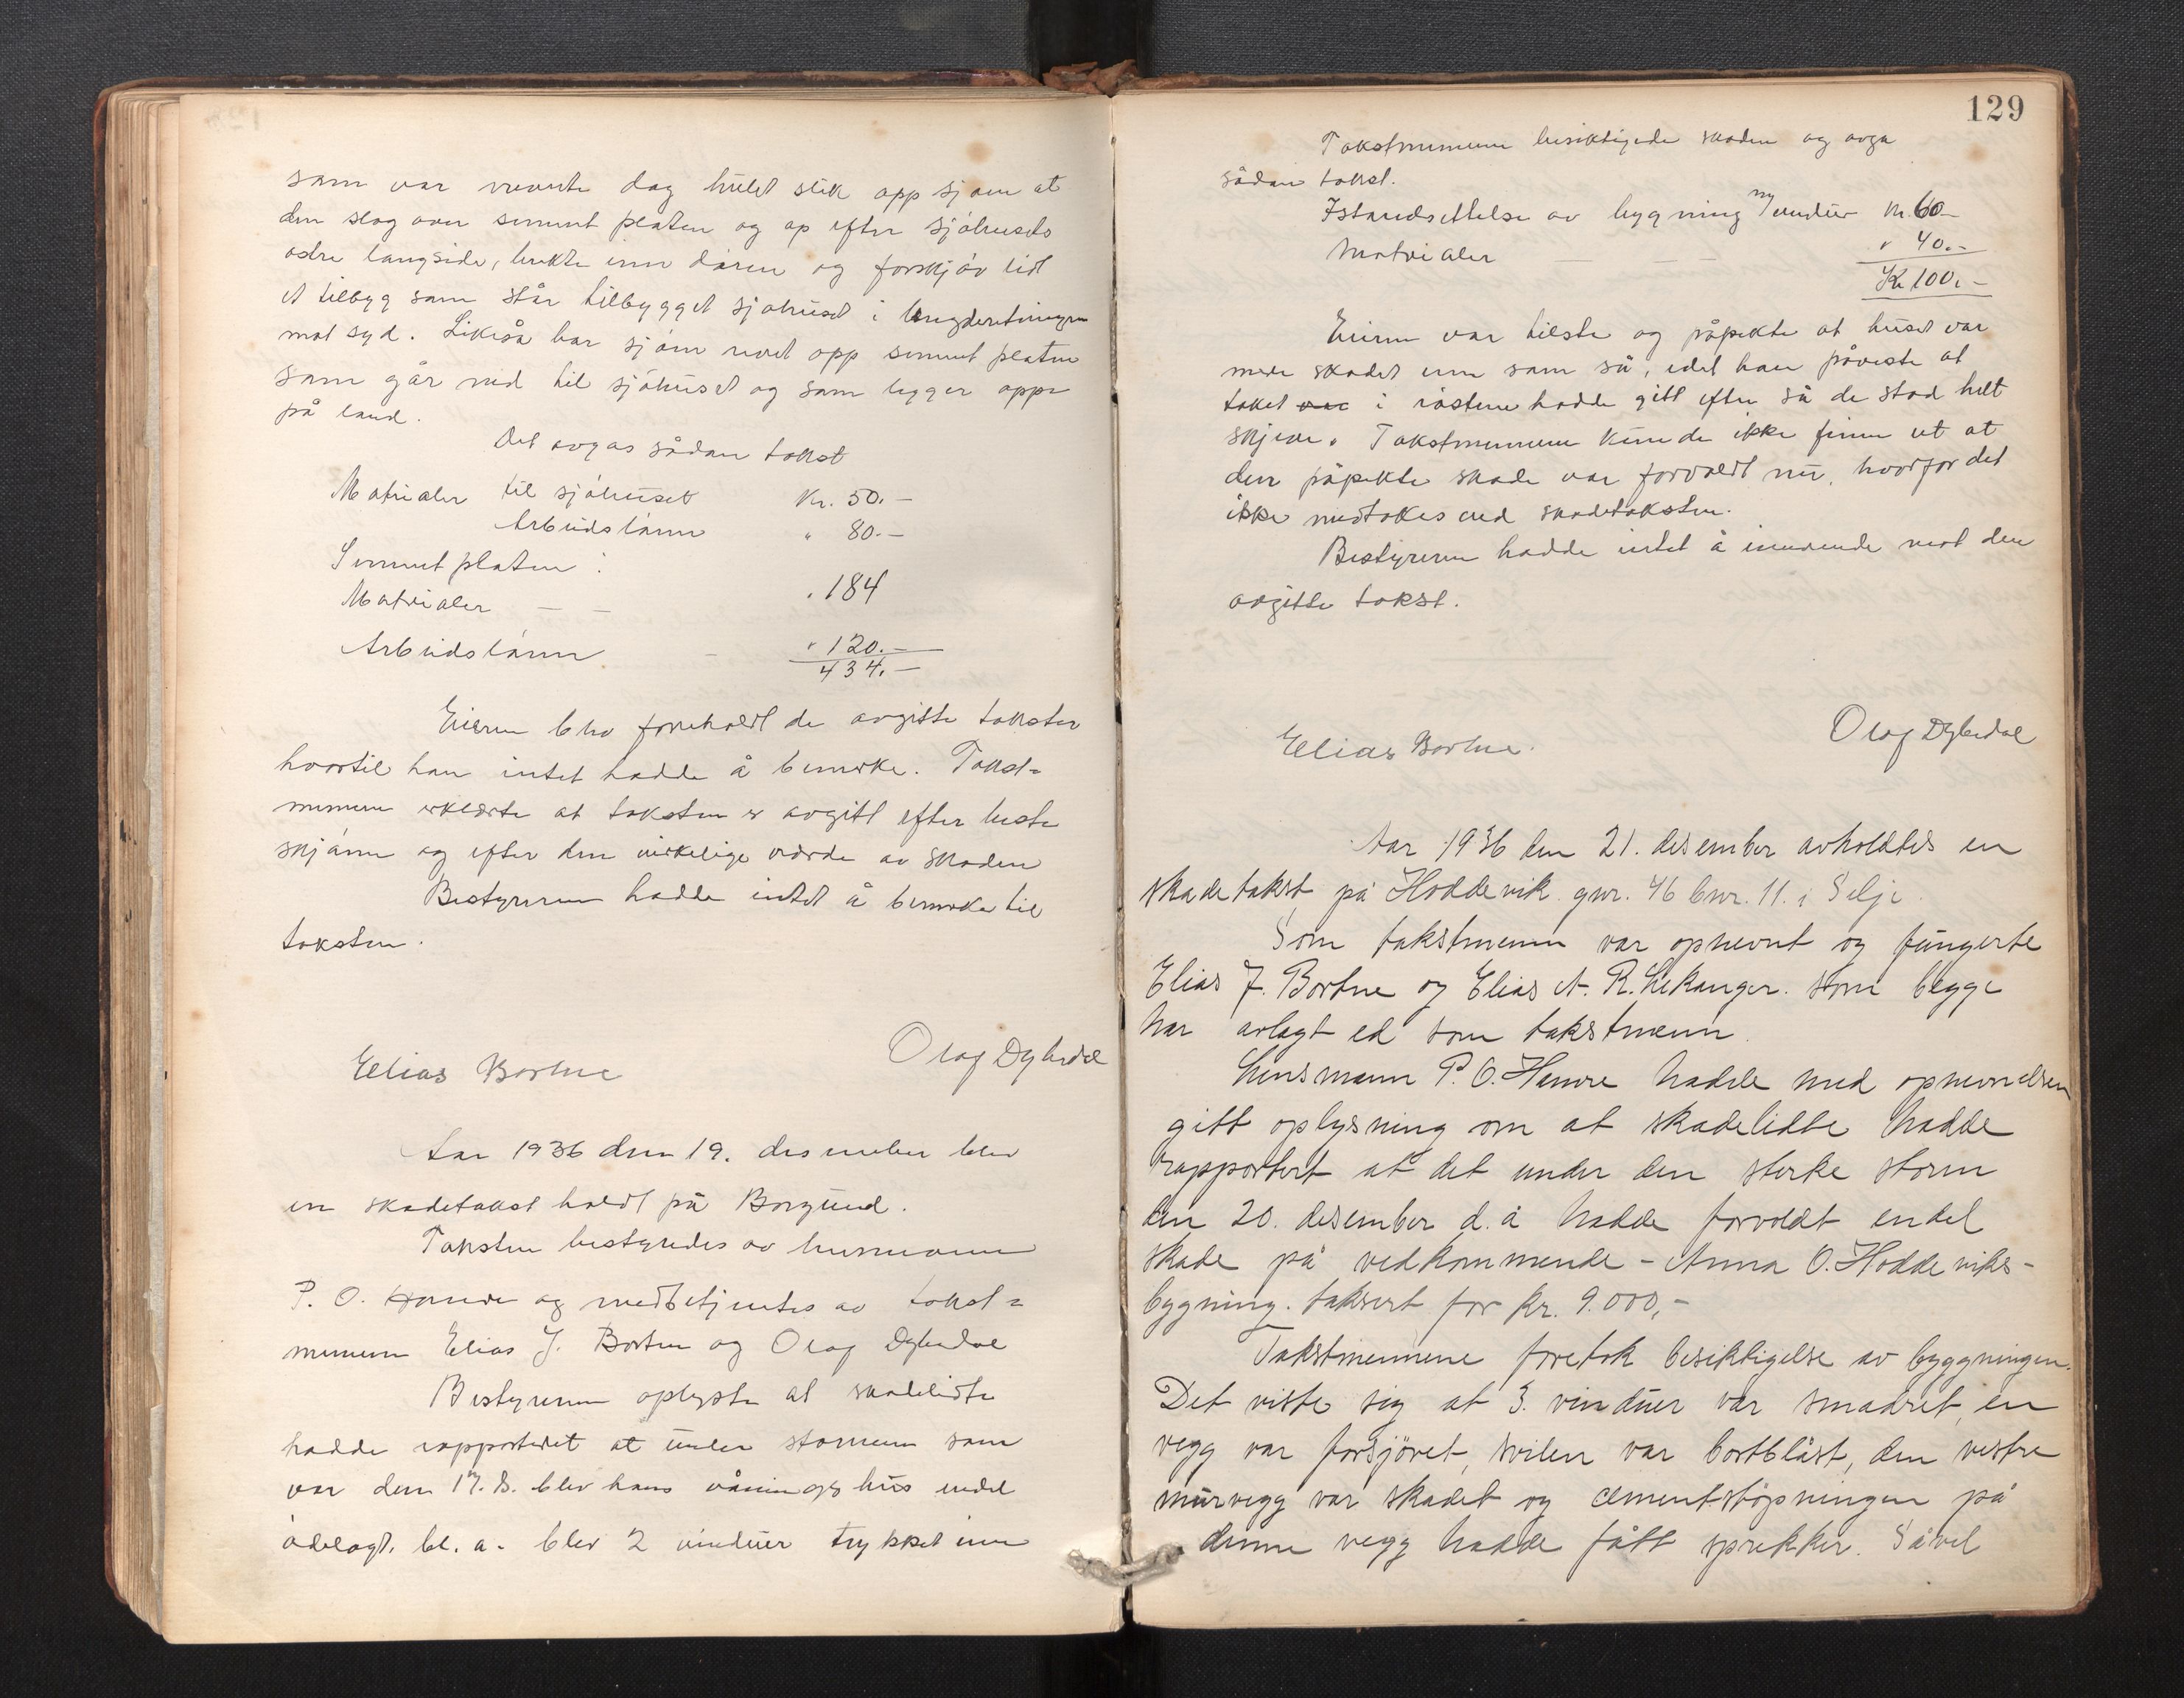 som var nevnte dag hulet slik opp sjøen at
den slog over sement platen og op efter sjøhusets
østre langside, brekte inn døren og forskjøv litt
et tilbygg som står tilbygget sjøhuset i lengderetningen
mot syd. Likeså har sjøen revet opp sement platen
som går ned til sjøhuset og som ligger oppe
på land.
Det avgas sådan takst
Matrialer til sjøhuset Kr. 50.-
Arbeidslønn " 80.-
Sement platen :
Matrialer - - " 184
Arbeidslønn - " 120.-
434.-
Eieren blev foreholdt de avgitte takster
hvortil han intet hadde å bemerke. Takst=
mennene erklærte at taksten er avgitt efter beste
skjønn og efter den virkelige værde av skaden
Bestyreren hadde intet å bemerke til
taksten.
Elias Bortne Olaf Dybedal
Aar 1936 den 19. desember blev
en skadetakst holdt på Borgund.
Taksten bestyredes av lensmann
P. O. Hamre og medbetjentes av takst=
mennene Elias J. Bortne og Olaf Dybedal
Bestyreren oplyste at skadelidte
hadde rapporteret at under stormen som
var den 17. ds. blev hans våningshus endel
ødelagt, bl. a. blev 2 vinduer trykket inn
129
Takstmennene besiktigede skaden og avga
sådan takst.
Istandsettelse av bygning ny vinduer Kr. 60-
Matrialer - - - " 40.-
Kr 100.-
Eieren var tilstede og påpekte at huset var
mere skadet enn som så, idet han påviste at
taket var i røstene hadde gitt efter så de stod helt
skjeve. Takstmennene kunde ikke finne ut at
den påpekte skade var forvoldt nu, hvorfor det
ikke medtakes ved skadetaksten.
Bestyreren hadde intet å innvende mot den
avgitte takst.
Elias Bortne. Olaf Dybedal
Aar 1936 den 21. desember avholdtes en
skadetakst på Hoddevik gnr. 46 bnr. 11. i Selje.
Som takstmenn var opnevnt og fungerte
Elias J. Bortne og Elias A. R. Leikanger. som begge
har avlagt ed som takstmenn.
Lensmann P. O. Hamre hadde med opnevnelsen
gitt oplysning om at skadelidte hadde
rapportert at det under den sterke storm
den 20. desember d. å hadde forvoldt endel
skade på vedkommende - Anna O. Hoddeviks -
bygning. taksert for kr. 9.000,-
Takstmennene foretok besiktigelse av byggningen.
Det viste sig at 3. vinduer var smadret, en
vegg var forsjövet, svilen var bortblåst, den vestre
murvegg var skadet og cementstöpningen på
denne vegg hadde fått sprekker. Såvel